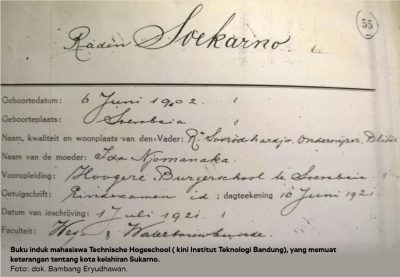 55
Raden Soekarno
Geboortedatum: 6 Juni 1902.
Geboorteplaats: Soerabaia
Naam, kwaliteit en woonplaats van den Vader: Rn Sosrodihardjo, Onderwijzer, Blitar
Naam van de moeder: Ida Njomanaka.
Vooropleiding: Hoogere Burgerschool te Soerabaia
Getuigschrift: Eindexamen id; dagteekening 10 Juni 1921
Datum van inschrijving: 1 Juli 1921.
Faculteit: Weg & Waterbouwkunde.
Buku induk mahasiswa Technische Hogeschool ( kini Institut Teknologi Bandung), yang memuat
keterangan tentang kota kelahiran Sukarno.
Foto: dok. Bambang Eryudhawan.